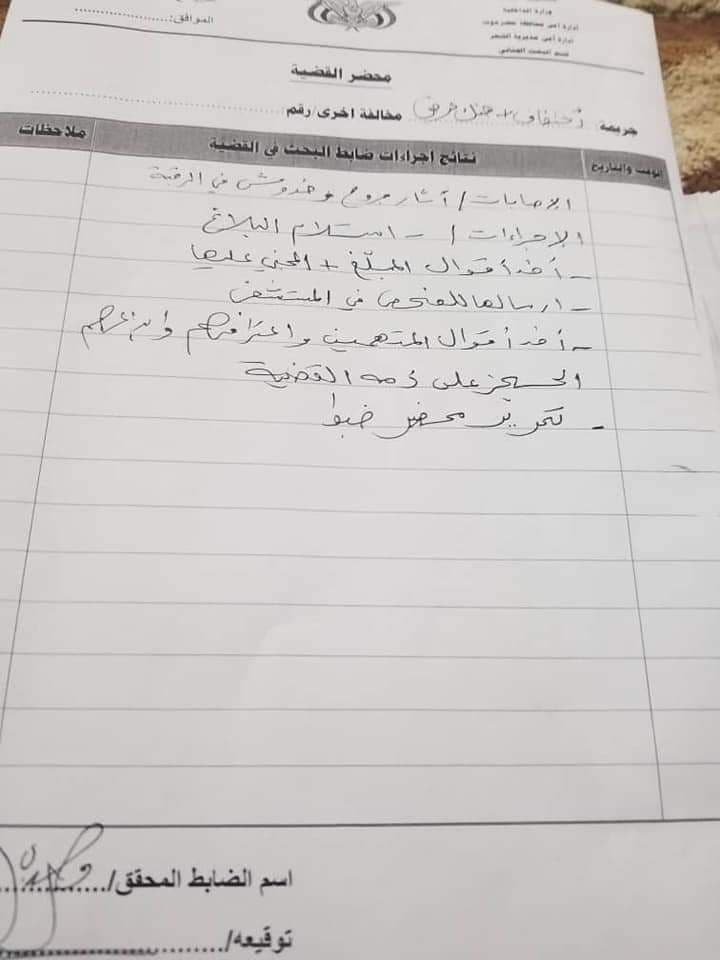 وزارة الداخلية
ادارة أمن محافظة حضرموت
ادارة أمن مديرية الشحر
قسم البحث الجنائي
الموافق:....................
محضر القضية
جريمة أختطاف + هتك عرض مخالفة اخرى/رقم:....................
الوقت والتاريخ نتائج اجراءات ضابط البحث في القضية ملاحظات
الاصابات / آثار جروح وخدوش في الرقبة
الاجراءات / - استلام البلاغ
- أخذ أقوال المبلغ + المجني عليها
- ارسالها للفحص في المستشفى
- أخذ أقوال المتهمين واعترافهم وايداعهم
الحجز على ذمه القضية
- تحرير محضر ضبط
اسم الضابط المحقق/............
توقيعه/....................